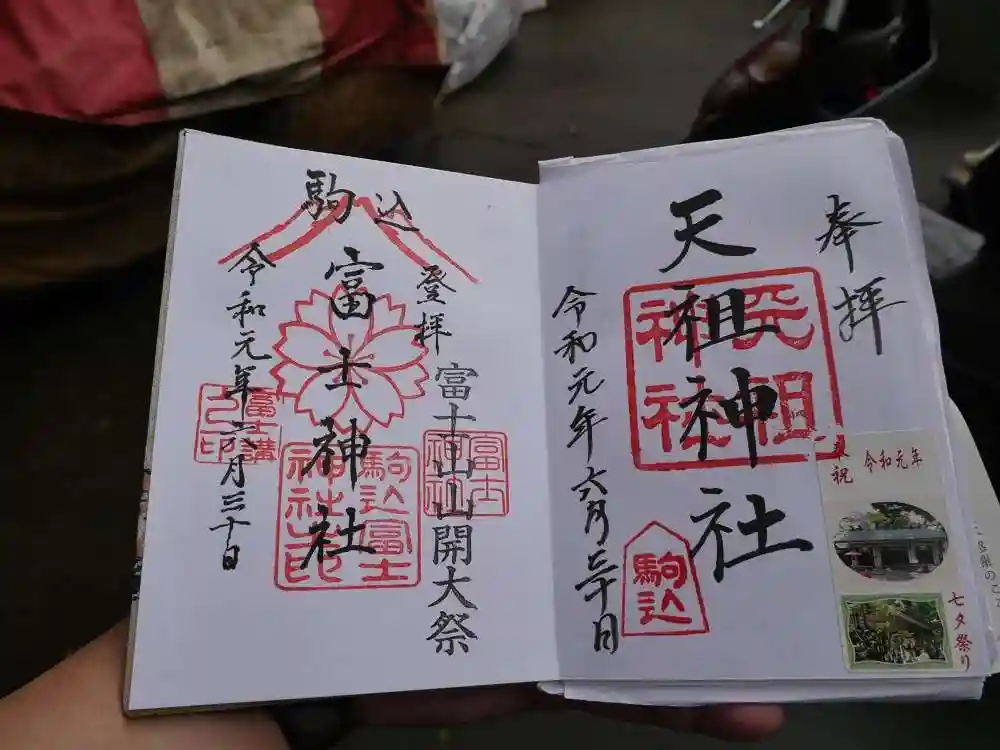 奉拝
天祖神社
天祖神社
令和元年六月三十日
駒込
奉祝
令和元年
七夕祭り
登拝
富士山山開大祭
富士神社
駒込
富士神社
駒込富士神社之印
富士講
令和元年六月三十日